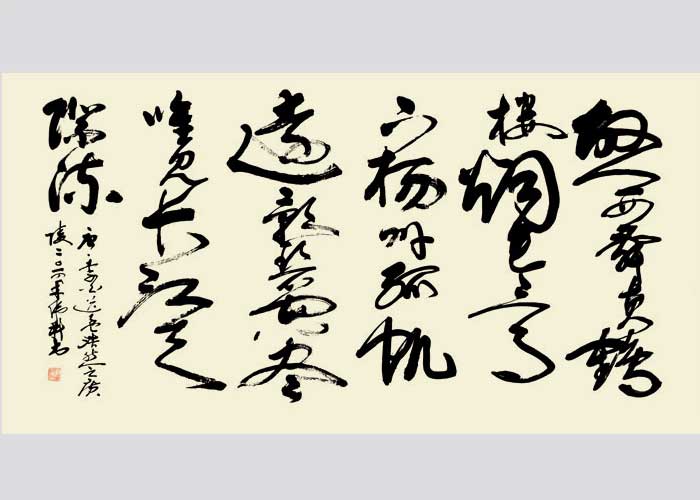 故人西辞黄鹤
楼烟花三月
下扬州孤帆
远影碧空尽
唯见长江天
际流
唐·李白送孟浩然之广
陵二〇